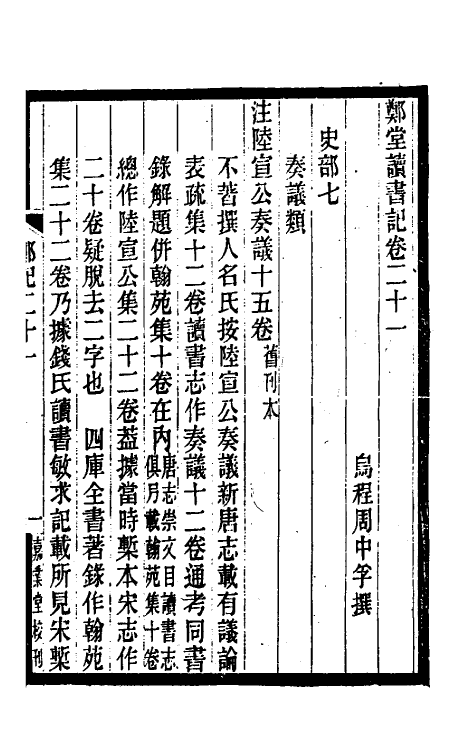 鄭堂讀書記卷二十一
烏程周中孚撰
史部七
奏議類
注陸宣公奏議十五卷舊刊本
不著撰人名氏按陸宣公奏議新唐志載有議論
表疏集十二卷讀書志作奏議十二卷通考同書
錄解題併翰苑集十卷在內唐志崇文目讀書志俱另載翰苑集十卷
總作陸宣公集二十二卷葢據當時槧本宋志作
二十卷疑脫去二字也 四庫全書著錄作翰苑
集二十二卷乃據錢氏讀書敏求記載所見宋槧
鄭記二十一
一
嘉業堂校刊